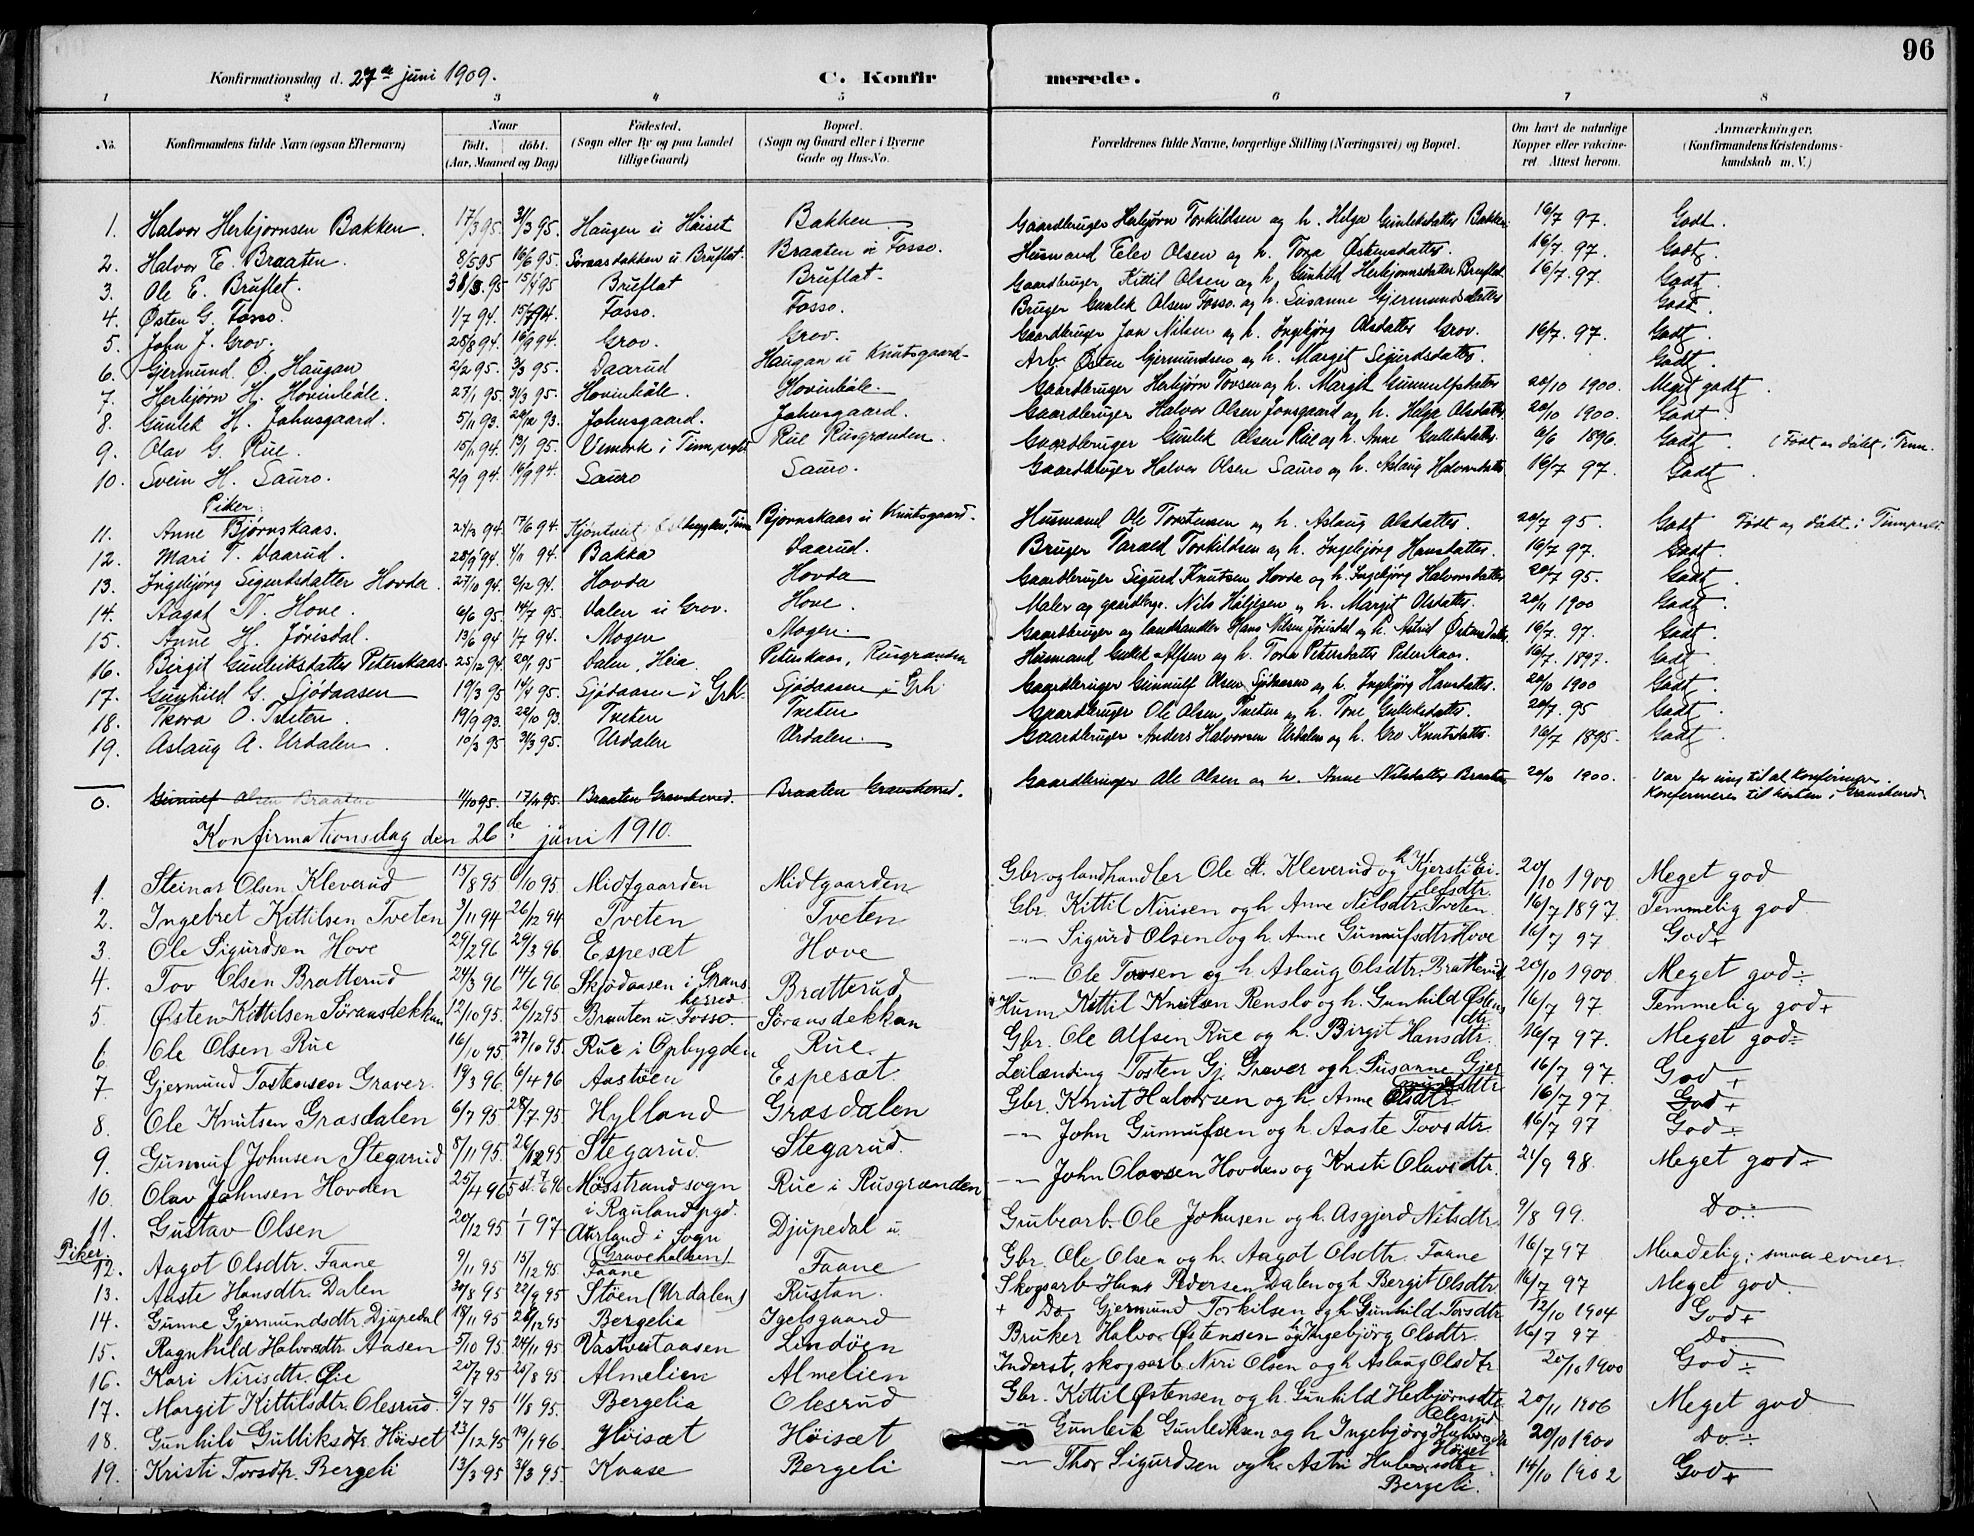 96
Konfirmationsdag d. 27de juni 1909. C. Konfirmerede.
1 2 3 4 5 6 7 8
No. Konfirmandens fulde Navn (ogsaa Efternavn) Naar født. døbt. (Aar, Maaned og Dag) Fødested. (Sogn eller By og paa Landet tillige Gaard) Bopæl. (Sogn og Gaard eller i Byerne Gade og Hus-No. Forældrenes fulde Navne, borgerlige Stilling (Næringsvei) og Bopæl. Om havt de naturlige Kopper eller vakcineret. Attest herom. Anmærkninger. (Konfirmandens Kristendomskundskab m. V.)
1. Halvor Herbjørnsen Bakken. 17/3 95. 31/3 95. Haugen u Høiset Bakken Gaardbruger Herbjørn Torkildsen og h. Helga Gunleksdatter Bakken 16/7 97. Godt.
2. Halvor E. Braaten. 8/5 95 16/6 95. Søraasdækken u Bruflat. Braaten u Fosso. Husmand Elev Olsen og h. Tora Østensdatter. 16/7. 97. Godt.
3. Ole E. Bruflat. 95 15/4 95 Bruflat Bruflat. Gaardbruger Kittil Olsen og h. Gunhild Herbjørnsdatter Bruflat 16/7. 97. Godt.
4. Østen G. Fosso. 1/7 94. 15/7 94. Fosso. Fosso. Bruger Gunlek Olsen Fosso. og h. Susanne Gjermundsdatter Godt.
5. John J. Grov. 25/8 94. 16/9 94. Grov. Grov. Gaardbruger Jon Nilsen og h. Ingebjørg Olsdatter Grov. 16/7. 97. Godt.
6. Gjermund Ø. Haugan 2/2 95. 3/3 95. Daarud Haugan u Knutsgaard. Arb. Østen Gjermundsen og h. Margit Sigurdsdatter. Godt.
7. Herbjørn H. Hovinbøle. 27/1 95. 31/3 95. Hovinbøle. Hovinbøle. Gaardbruger Herbjørn Tovsen og h. Margit Gunnulfsdatter 20/10 1900. Meget godt.
8. Gunlek H. Johnsgaard. 5/11 93. 26/12 93. Johnsgaard. Johnsgaard. Gaardbruger Halvor Olsen Jonsgaard og h. Helga Olsdatter. 20/10 1900. Godt.
9. Olav G. Rue. 15/11 94. 13/1 95. Vemork i Tinn prgd. Rue Rusgrænden. Gaardbruger Gunlek Olsen Rue og h. Anne Gulleksdatter. 6/6 1896. Godt (Født og døbt i Tinn.
10. Svein H. Sauro. 2/9 94. 16/9 94. Sauro Sauro. Gaardbruger Halvor Olsen Sauro og h. Aslaug Halvorsdatter 16/7 97. Godt.
Piker.
11. Anne Bjørnskaas. 24/3 94 17/6 94. Bjørnskaas u Knutsgaard. Husmand Ole Torstensen og h. Aslaug Olsdatter. 20/7 95. Godt Født og døbt i Tinn prgd.
12. Mari T. Daarud. 28/9 94. 4/11 94. Bakka Daarud. Bruger Tarald Torkildsen og h. Ingebjørg Hansdatter. 16/7 97. Godt.
13. Ingebjørg Sigurdsdatter Hovda. 27/10 94. 2/12 94. Hovda Hovda Gaardbruger Sigurd Knutsen Hovda og h. Ingebjørg Halvorsdatter 20/7 95. Godt.
14. Aagot N. Hove. 6/6 95. 14/7 95. Dalen u Grov. Hove. Maler og gaardbrgr. Nils Hølgesen og h. Margit Olsdatter. 20/11 1900 Godt.
15. Anne H. Jørisdal. 13/6 94 1/7 94. Mogen Mogen. Gaardbruger og landhandler Hans Nilsen Jørisdal og h. Astrid Østensdatter 16/7. 97. Godt.
16. Bergit Gunleiksdatter Peterskaas. 25/12 94. 20/1 95 Dalen, Høia. Peterskaas, Rusgrænden Husmand Gulek Alfsen og h. Tora Petersdatter Peterskaas. 16/7. 1897. Godt
17. Gunhild G. Sjødaasen 19/3 95 14/4 95. Sjødaasen i Grh. Sjødaasen i Grh. Gaardbruger Gunnulf Olsen Sjøtaasen og h. Ingebjørg Hansdatter. 20/10 1900 Godt.
18. Thora O. Tveten. 19/9 93. 22/10 93. Tveten Tveten Gaardbruger Ole Olsen Tveten og h. Tone Gulleksdatter. 20/7. 95 Godt.
19. Aslaug A. Urdalen. 10/3 95 31/3 95. Urdalen Urdalen. Gaardbruger Anders Halvorsen Urdalen og h. Gro Knutsdatter. 16/7 1895. Godt
0. Gunnulf Olsen Braaten 1/10 95. 17/11 95. Braaten Gransherred. Braaten Gransherred. Gaardbruger Ole Olsen og h. Anne Nilsdatter Braaten 20/10 1900. Var for ung til at konfirmeres.
Konfirmeres til høsten i Gransherred.
Konfirmationsdag den 26de juni 1910.
1. Steinar Olsen Kleverud 13/8 95 6/10 95. Midtgaarden Midtgaarden Gbr. og landhandler Ole St. Kleverud og h Kjersti Eilefsdtr. 20/10 1900 Meget god
2. Ingebret Kittilsen Tveten 3/11 94 26/12 94 Tveten Tveten Gbr. Kittil Nirisen og h. Anne Nilsdtr. Tveten. 16/7 1897 Temmelig god
3. Ole Sigurdsen Hove 29/2 96 29/3 96 Espesæt Hove -"- Sigurd Olsen og h. Anne Gunnufsdtr Hove 16/7 97 God +
4. Tov Olsen Bratterud 24/3 96 14/6 96 Skjødaasen i Gransherred Bratterud -"- Ole Tovsen og h Aslaug Olsdtr. Bratterud 20/10 1900 Meget god ÷
5. Østen Kittilsen Søraasdekkan 12/10 95. 26/12 95 Braaten u. Fosso. Søraasdekkan Husm Kittil Knutsen Renslo og h. Gunhild Østensdtr. 16/7 97 Temmelig god +
6. Ole Olsen Rue 16/10 95. 27/10 95. Rue i Opbygden Rue. Gbr. Ole Alfsen Rue og h. Birgit Hansdtr. 16/7 97. Meget god ÷
7. Gjermund Tostensen Graver. 19/3 96. 6/4 96 Aastøen Espesæt. Leilænding Tosten Gj. Graver og h Susanne Gjermundsdtr 16/7 97. God +
8. Ole Knutsen Grasdalen 6/7 95 28/7 95. Hylland Grasdalen Gbr. Knut Halvorsen og h. Anne Olsdtr 16/7 97 God +
9. Gunnuf Johnsen Stegarud 8/11 95. 26/12 95 Stegarud. Stegarud. -"- John Gunnufsen og h. Aaste Tovsdtr. 16/7 97 God ÷
10. Olav Johnsen Hovden 25/4 96 Møsstrand sogn i Rauland pgd. Rue i Rusgrænden -"- John Olavsen Hovden og Kristi Olavsdtr. 21/9 98. Meget god ÷
11. Gustav Olsen 20/12 95 1/1 97 Aurland i Sogn (Gravehalsen) Djupedal u Grubearb. Ole Johnsen og h. Asgjerd Nilsdtr. 9/8 99. Do ÷
Piker.
12. Aagot Olsdtr. Faane 9/11 95 15/12 95. Faane Faane Gbr. Ole Olsen og h. Aagot Olsdtr. Faane 16/7 97 Maadelig; smaa evner.
13. Aaste Hansdtr. Dalen 30/8 95 22/9 95 Støen (Urdalen) Rustan. Skogsarb Hans Pedersen Dalen og h. Bergit Olsdtr. 16/7 97 Meget god
14. Gunne Gjermundsdtr. Djupedal 18/11 95 26/12 95 Bergelia Igelsgaard + Do Gjermund Torkilsen og h Gunhild Torsdtr. 12/10 1904 God +
15. Ragnhild Halvorsdtr. Aasen 5/10 95. 24/11 95 Vastveitaasen Lindøen Bruker Halvor Østensen og h Ingebjørg Olsdtr. 16/7 97 Do
16. Kari Nirisdtr. Øie 20/7 95 25/8 95. Almelien Almelien Inderst, skogsarb. Niri Olsen og h Aslaug Olsdtr. 20/10 1900 God ÷
17. Margit Kittilsdtr. Olesrud. 9/7 95 11/8 95. Bergelia Olesrud Gbr. Kittil Østensen og h. Gunhild Herbjørnsdtr Olesrud 20/11 1906 Meget god
18. Gunhild Gulliksdtr. Høiset 23/12 95 19/1 96. Høisæt Høisæt -"- Gunleik Gunleiksen og h Ingebjørg Halvorsdtr Høiset 20/10 1900 Do ÷
19. Kristi Torsdtr. Bergeli 13/3 95 31/3 95. Kaase Bergeli -"- Thor Sigurdsen og h. Astri Halvorsdtr. Bergeli. 14/10 1902 God +